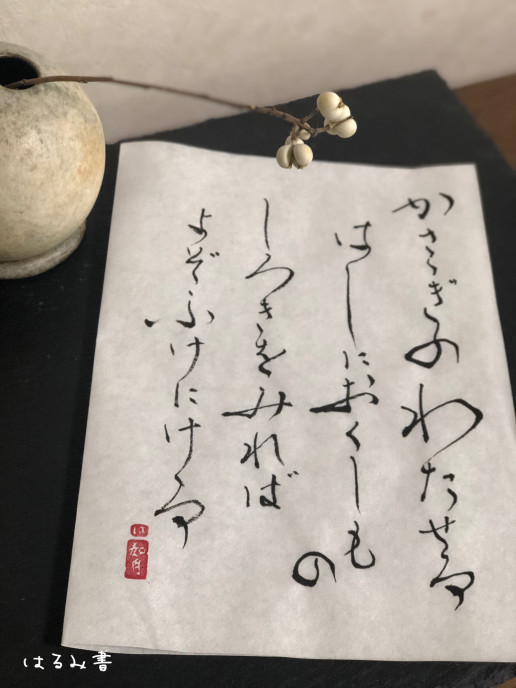 かささぎのわたせる
はしにおくしも
の
しろきをみれば
よぞふけにける
はるみ書